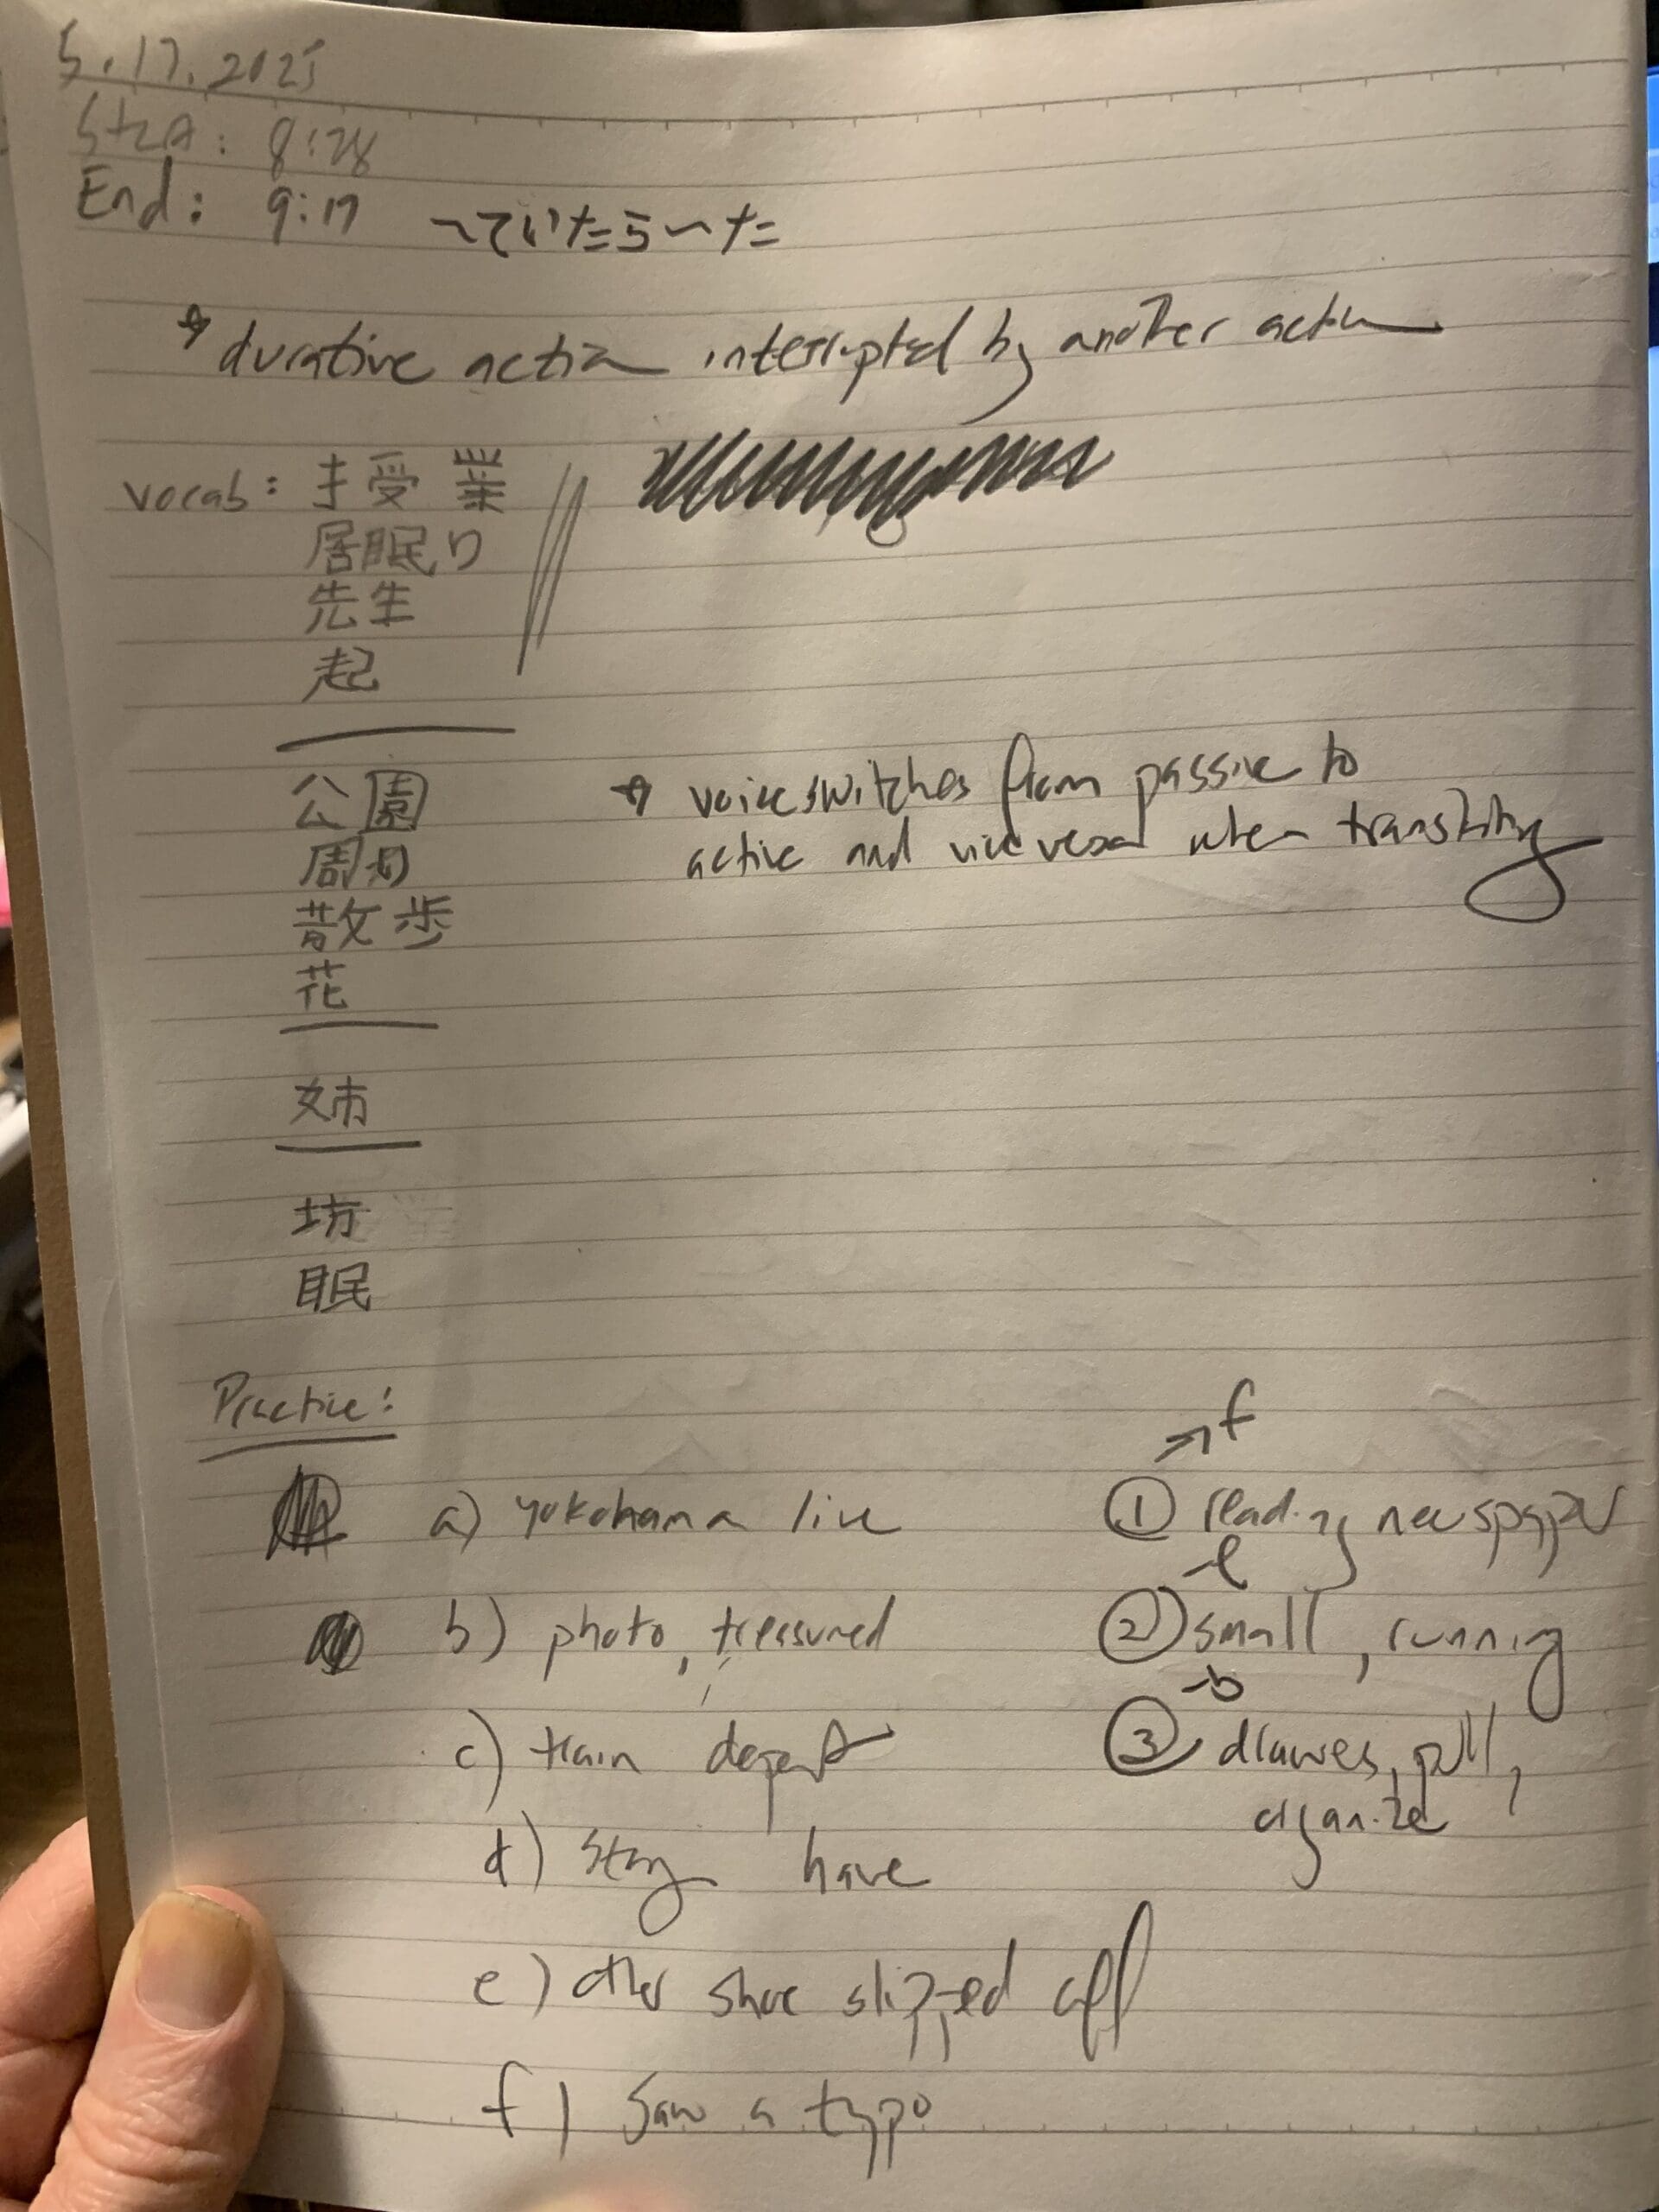 5.17.2025
Start: 8:28
End: 9:19 〜ていたら〜た
→ durative action interrupted by another action
vocab: 授業
居眠り
先生
起
公園
→ voice switches from passive to
active and vice versa when translating
周り
散歩
花
姉
坊
眠
Practice:
→ f
a) yokohama live ① reading newspaper
→ e
b) photo, treasured ② small, running
→ b
c) train depart ③ drawers, pull,
organize
d) stay have
e) other shoe slipped off
f) saw a typo